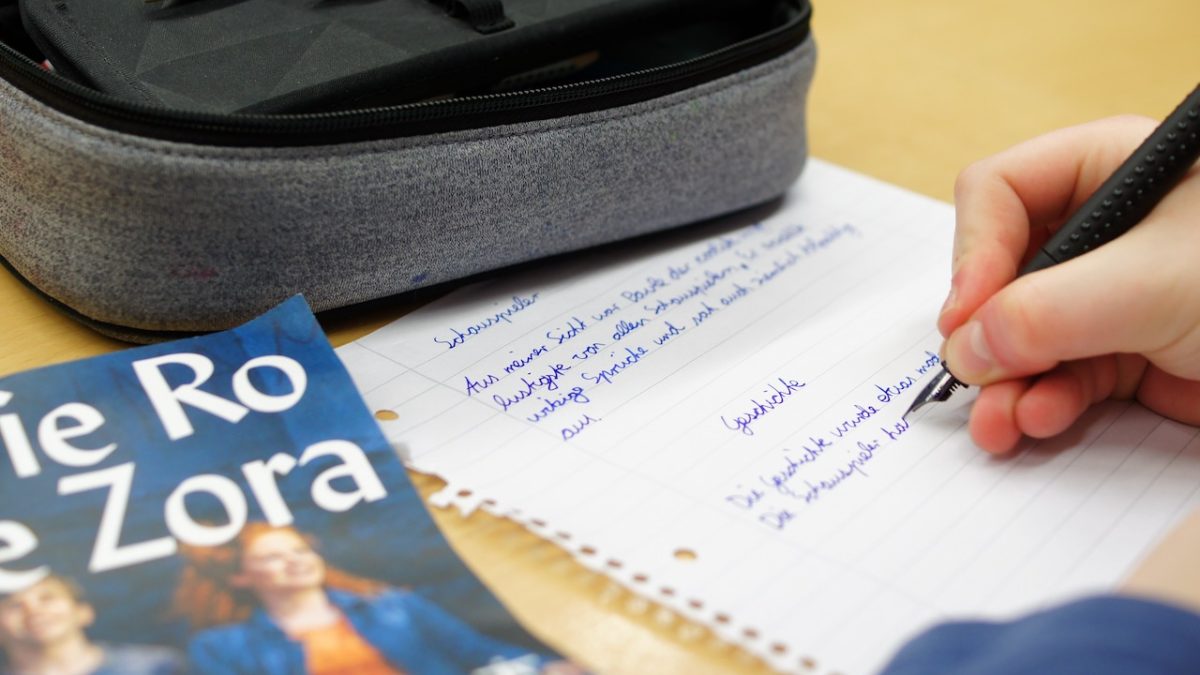 ie Ro
e Zora
Schauspieler
Aus meiner Sicht war der
lustigste von allen Schauspielern,
witzige Sprüche und sah auch ziemlich
aus
Geschichte
Die Geschichte wurde etwas mod
Die Schauspieler ha